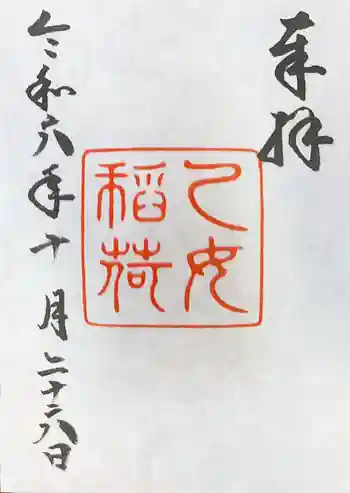 奉拝
乙女
稲荷
令和六年十月二十六日